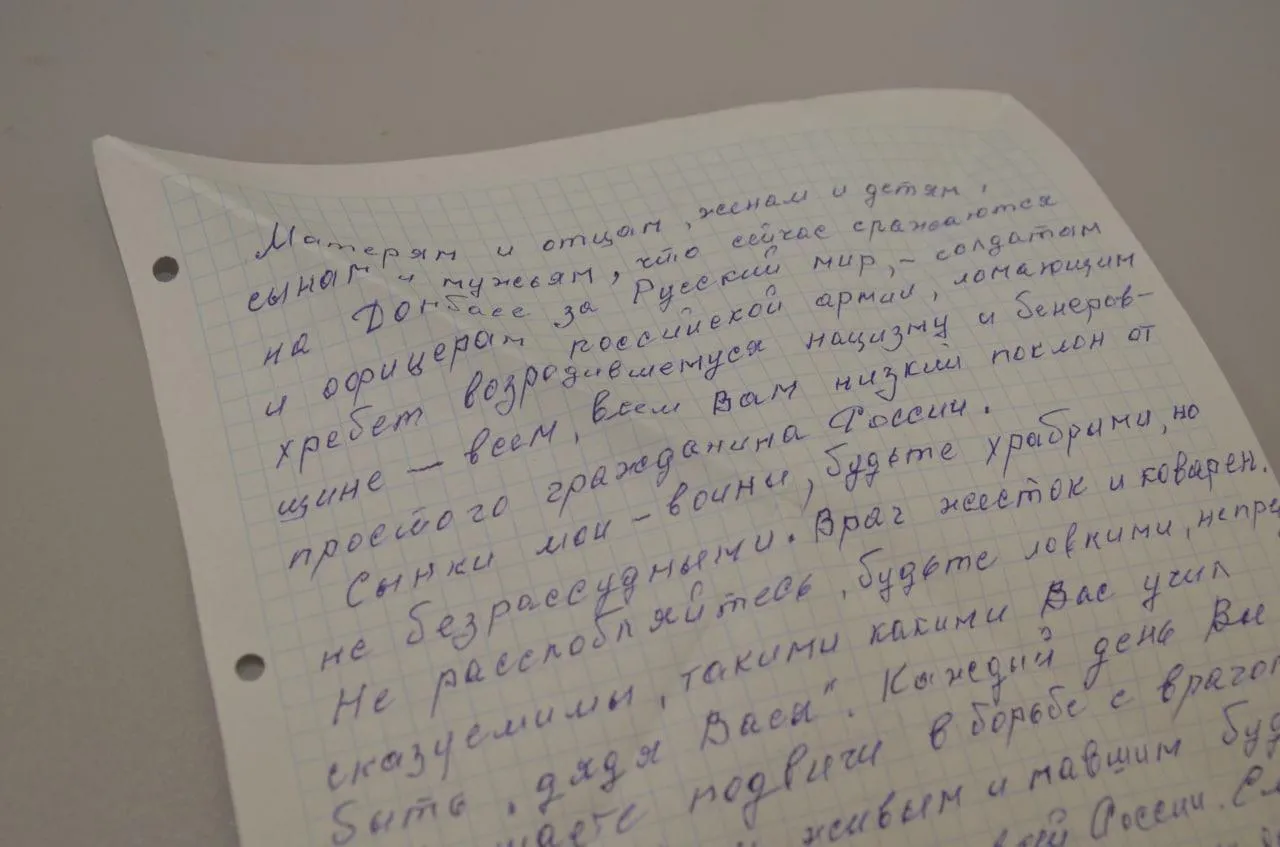 Матерям и отцам, женам и детям,
сынам и мужьям, что сейчас сражаются
на Донбасе за Русский мир, – солдатам
и офицерам российской армии, ломающим
хребет возродившемуся нацизму и бенеров-
щине – всем, всем Вам низкий поклон от
простого гражданина России.
Сынки мои – воины, будьте храбрыми, но
не безрассудными. Враг жесток и коварен.
Не расслобляйтесь, будьте ловкими, непре
сказуемимы, такими какими Вас учил
быть "дядя Вася". Каждый день Вы
подвиги в борьбе с врагом
живым и павшим буд
России. Сл